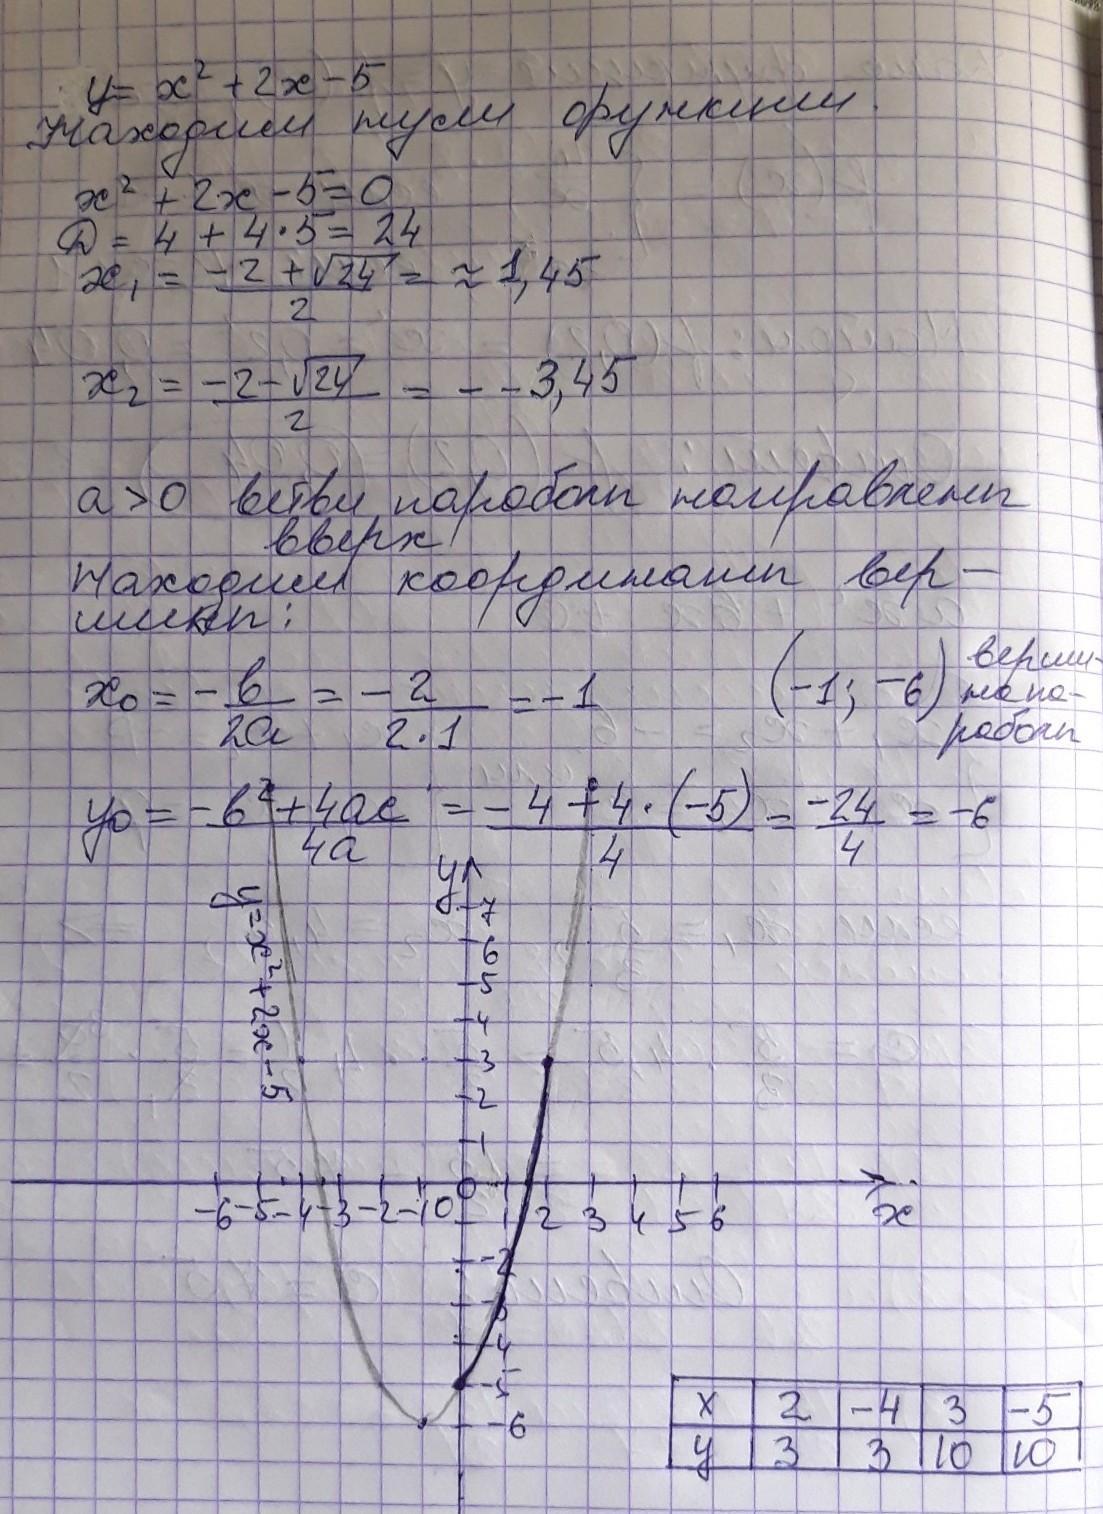 y = x² + 2x - 5
Находим нули функции.
x² + 2x - 5 = 0
D = 4 + 4·5 = 24
x₁ = (-2 + √24)/2 = ≈ 1,45
x₂ = (-2 - √24)/2 = - -3,45
a > 0 ветви параболы направлены
вверх
Находим координаты вер-
шины:
x₀ = -b/2a = -2/2·1 = -1
(-1; -6) верши-
на па-
раболы
y₀ = (-b² + 4ac)/4a = (-4 + 4·(-5))/4 = -24/4 = -6
y
y = x² + 2x - 5
7
6
5
4
3
2
1
-6 -5 -4 -3 -2 -1 0 0 1 2 3 4 5 6
x
-2
3
-4
-5
-6
x 2 -4 3 -5
y 3 3 10 10